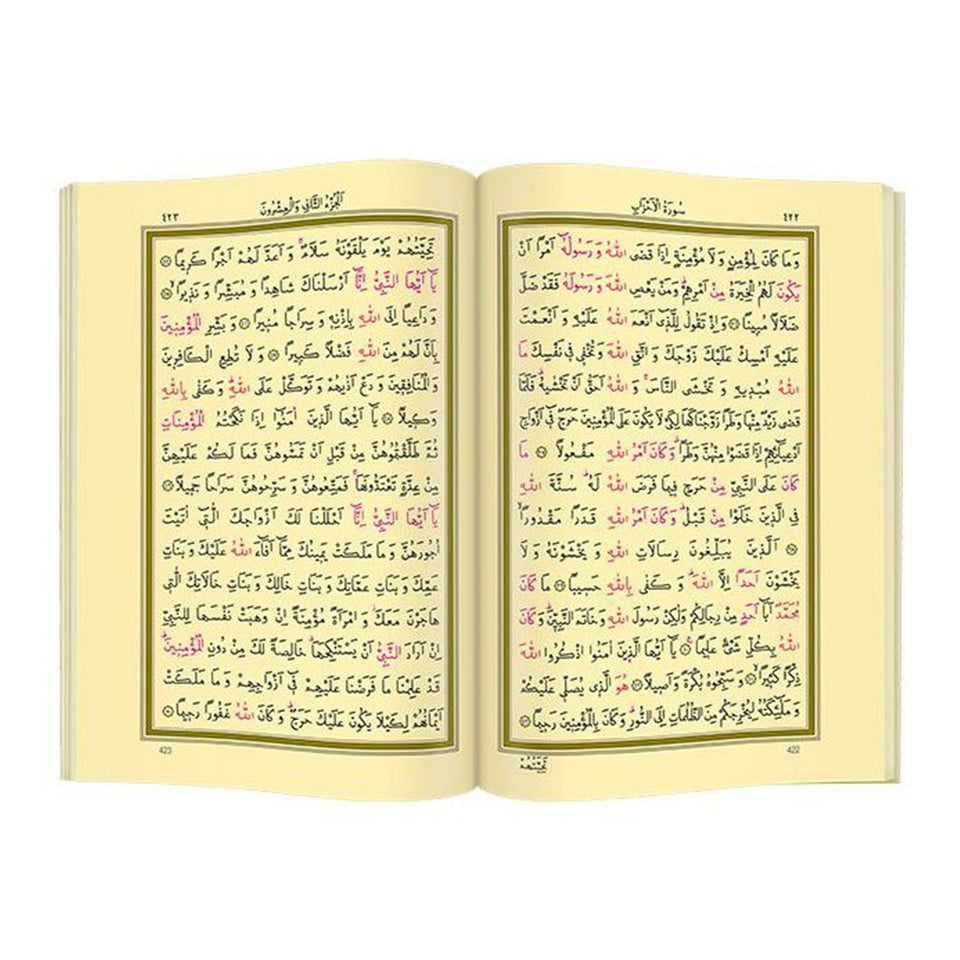 ٤٢٢ سُورَةُ الْاَحْزَابِ
وَمَا كَانَ لِمُؤْمِنٍ وَلَا مُؤْمِنَةٍ اِذَا قَضَى اللّٰهُ وَرَسُولُهُٓ اَمْرًا اَنْ
يَكُونَ لَهُمُ الْخِيَرَةُ مِنْ اَمْرِهِمْۜ وَمَنْ يَعْصِ اللّٰهَ وَرَسُولَهُ فَقَدْ ضَلَّ
ضَلَالًا مُبِينًا ﴿٣٦﴾ وَاِذْ تَقُولُ لِلَّذِٓي اَنْعَمَ اللّٰهُ عَلَيْهِ وَاَنْعَمْتَ
عَلَيْهِ اَمْسِكْ عَلَيْكَ زَوْجَكَ وَاتَّقِ اللّٰهَ وَتُخْفِي فِي نَفْسِكَ مَا
اللّٰهُ مُبْدِيهِ وَتَخْشَى النَّاسَۚ وَاللّٰهُ اَحَقُّ اَنْ تَخْشٰيهُۜ فَلَمَّا
قَضٰى زَيْدٌ مِنْهَا وَطَرًا زَوَّجْنَاكَهَا لِكَيْ لَا يَكُونَ عَلَى الْمُؤْمِنِينَ حَرَجٌ فِٓي اَزْوَاجِ
اَدْعِيَٓائِهِمْ اِذَا قَضَوْا مِنْهُنَّ وَطَرًاۜ وَكَانَ اَمْرُ اللّٰهِ مَفْعُولًا ﴿٣٧﴾ مَا
كَانَ عَلَى النَّبِيِّ مِنْ حَرَجٍ فِيمَا فَرَضَ اللّٰهُ لَهُۜ سُنَّةَ اللّٰهِ
فِي الَّذِينَ خَلَوْا مِنْ قَبْلُۜ وَكَانَ اَمْرُ اللّٰهِ قَدَرًا مَقْدُورًاۙ
﴿٣٨﴾ اَلَّذِينَ يُبَلِّغُونَ رِسَالَاتِ اللّٰهِ وَيَخْشَوْنَهُ وَلَا
يَخْشَوْنَ اَحَدًا اِلَّا اللّٰهَۜ وَكَفٰى بِاللّٰهِ حَسِيبًا ﴿٣٩﴾ مَا كَانَ
مُحَمَّدٌ اَبَٓا اَحَدٍ مِنْ رِجَالِكُمْ وَلٰكِنْ رَسُولَ اللّٰهِ وَخَاتَمَ النَّبِيِّنَۜ وَكَانَ
اللّٰهُ بِكُلِّ شَيْءٍ عَلِيمًا۟ ﴿٤٠﴾ يَٓا اَيُّهَا الَّذِينَ اٰمَنُوا اذْكُرُوا اللّٰهَ
ذِكْرًا كَثِيرًاۙ ﴿٤١﴾ وَسَبِّحُوهُ بُكْرَةً وَاَصِيلًا ﴿٤٢﴾ هُوَ الَّذِي يُصَلِّي عَلَيْكُمْ
وَمَلٰٓئِكَتُهُ لِيُخْرِجَكُمْ مِنَ الظُّلُمَاتِ اِلَى النُّورِۜ وَكَانَ بِالْمُؤْمِنِينَ رَحِيمًا ﴿٤٣﴾
422
تَحِيَّتُهُمْ
اَلْجُزْءُ الثَّانِي وَالْعِشْرُونَ ٤٢٣
تَحِيَّتُهُمْ يَوْمَ يَلْقَوْنَهُ سَلَامٌۚ وَاَعَدَّ لَهُمْ اَجْرًا كَرِيمًا ﴿٤٤﴾
يَٓا اَيُّهَا النَّبِيُّ اِنَّٓا اَرْسَلْنَاكَ شَاهِدًا وَمُبَشِّرًا وَنَذِيرًاۙ ﴿٤٥﴾
وَدَاعِيًا اِلَى اللّٰهِ بِاِذْنِهِ وَسِرَاجًا مُنِيرًا ﴿٤٦﴾ وَبَشِّرِ الْمُؤْمِنِينَ
بِاَنَّ لَهُمْ مِنَ اللّٰهِ فَضْلًا كَبِيرًا ﴿٤٧﴾ وَلَا تُطِعِ الْكَافِرِينَ
وَالْمُنَافِقِينَ وَدَعْ اَذٰيهُمْ وَتَوَكَّلْ عَلَى اللّٰهِۜ وَكَفٰى بِاللّٰهِ
وَكِيلًا ﴿٤٨﴾ يَٓا اَيُّهَا الَّذِينَ اٰمَنُٓوا اِذَا نَكَحْتُمُ الْمُؤْمِنَاتِ
ثُمَّ طَلَّقْتُمُوهُنَّ مِنْ قَبْلِ اَنْ تَمَسُّوهُنَّ فَمَا لَكُمْ عَلَيْهِنَّ
مِنْ عِدَّةٍ تَعْتَدُّونَهَاۚ فَمَتِّعُوهُنَّ وَسَرِّحُوهُنَّ سَرَاحًا جَمِيلًا ﴿٤٩﴾
يَٓا اَيُّهَا النَّبِيُّ اِنَّٓا اَحْلَلْنَا لَكَ اَزْوَاجَكَ الّٰتِٓي اٰتَيْتَ
اُجُورَهُنَّ وَمَا مَلَكَتْ يَمِينُكَ مِمَّٓا اَفَٓاءَ اللّٰهُ عَلَيْكَ وَبَنَاتِ
عَمِّكَ وَبَنَاتِ عَمَّاتِكَ وَبَنَاتِ خَالِكَ وَبَنَاتِ خَالَاتِكَ الّٰتِي
هَاجَرْنَ مَعَكَۘ وَامْرَاَةً مُؤْمِنَةً اِنْ وَهَبَتْ نَفْسَهَا لِلنَّبِيِّ
اِنْ اَرَادَ النَّبِيُّ اَنْ يَسْتَنْكِحَهَاۗ خَالِصَةً لَكَ مِنْ دُونِ الْمُؤْمِنِينَۜ
قَدْ عَلِمْنَا مَا فَرَضْنَا عَلَيْهِمْ فِٓي اَزْوَاجِهِمْ وَمَا مَلَكَتْ
اَيْمَانُهُمْ لِكَيْلَا يَكُونَ عَلَيْكَ حَرَجٌۜ وَكَانَ اللّٰهُ غَفُورًا رَحِيمًا ﴿٥٠﴾
423